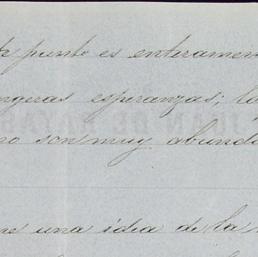 punto es enteramen
ngeras esperanzas; la
no son muy abunda
una idea de la